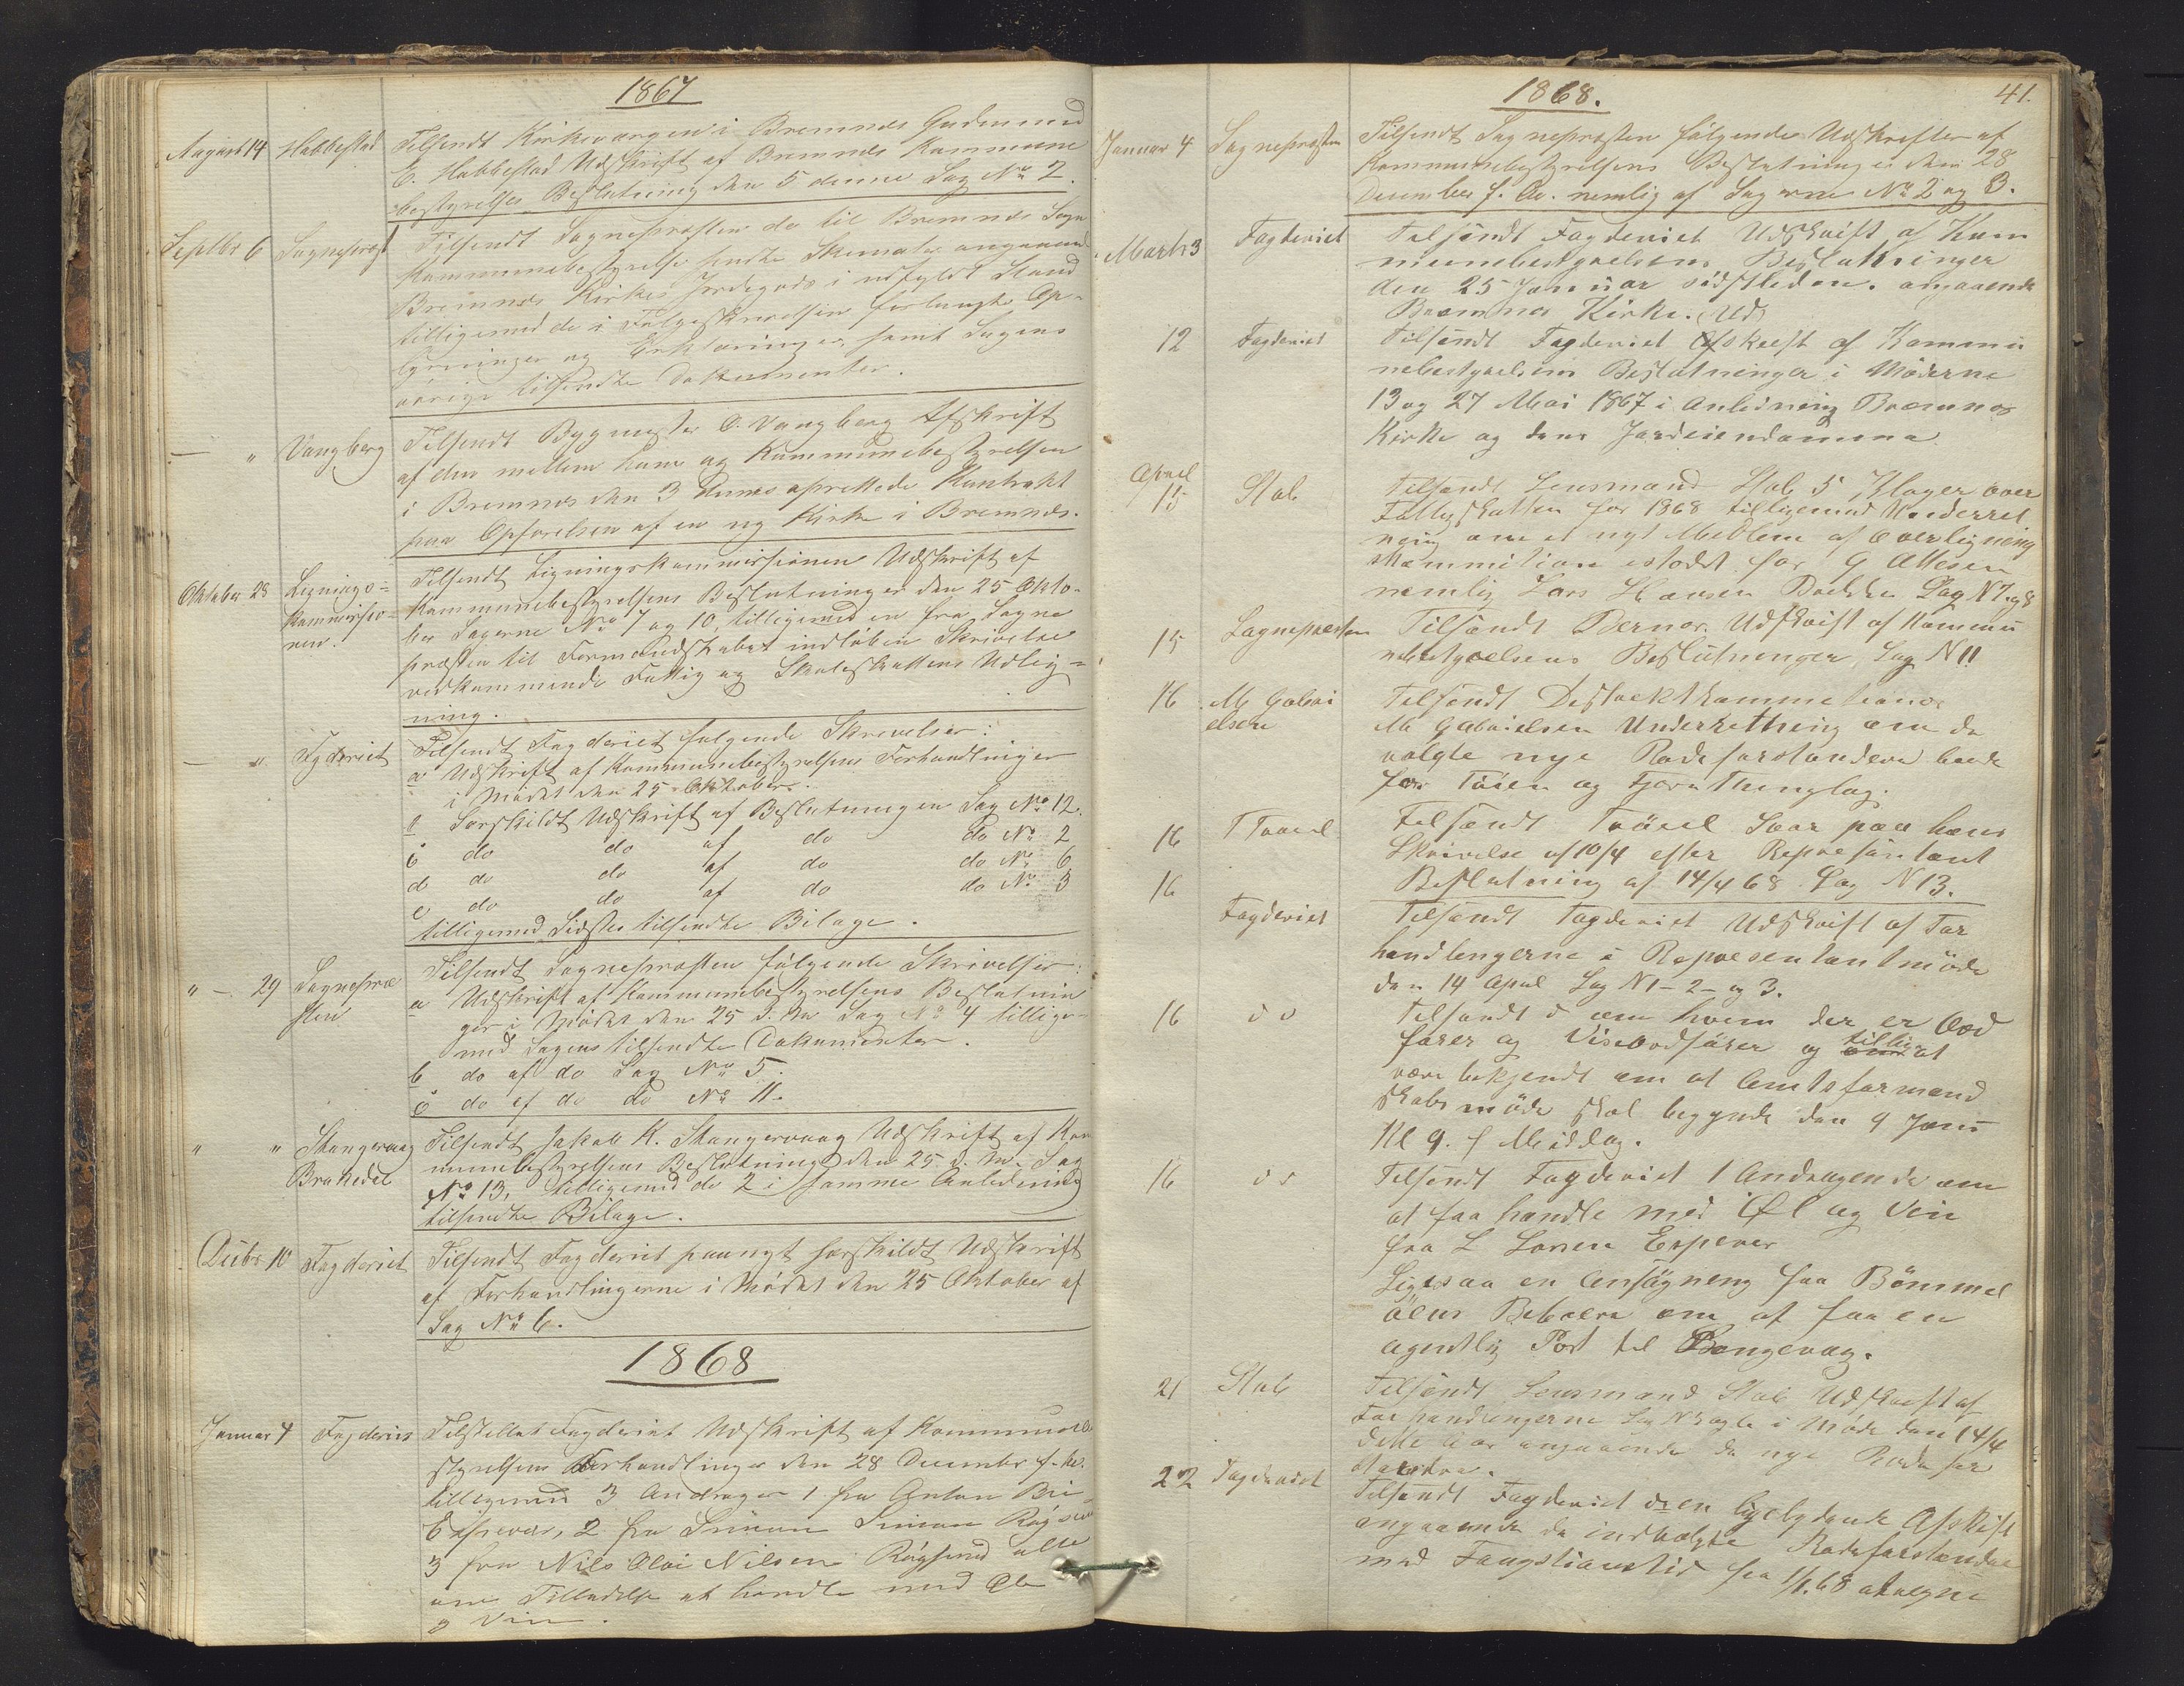 1867
August 14 Habbestad Tilsendt Kirkeværgen i Bremnes Gudmund
E. Habbestad Udskrift af Bremnes Kommune
bestyrelses Beslutning den 5 denne Sag No 2.
Septbr 6 Sognepræst Tilsendt Sognepræsten de til Bremnes Sogn
Kommunebestyrelse sendte Skemater angaaende
Bremnes Kirkes Jordegods i udfyldt Stand
tilligemed de i Følgeskrivelsen forlangte Op-
lysninger og Erklæringer, samt Sagens
øvrige tilsendte Dokumenter.
— " Vangberg Tilsendt Bygmester O. Vangberg Afskrift
af den mellem ham og Kommunebestyrelsen
i Bremnes den 3 dennes oprettede Kontrakt
paa Opførelsen af en ny Kirke i Bremnes.
Oktober 28 Lignings-
kommissio-
nen. Tilsendt Ligningskommissionen Udskrift af
Kommunebestyrelsens Beslutninger den 25 Okto-
ber Sagerne No 7 og 10, tilligemed en fra Sogne
præsten til Formandskabet indløben Skrivelse
vedkommende Fattig og Skoleskattens Udlig-
ning.
— " Fogderiet Tilsendt Fogderiet følgende Skrivelser:
a Udskrift af Kommunebestyrelsens Forhandlinger
i Mødet den 25 Oktober.
b Særskildt Udskrift af Beslutningen Sag No 12.
c do do af do do No 2
d do do af do do No 6
e do do af do do No 3
tilligemed Sidstes tilsendte Bilage.
" — 29 Sognepræ
sten Tilsendt Sognepræsten følgende Skrivelser:
a Udskrift af Kommunebestyrelsens Beslutnin
ger i Mødet den 25 d. M. Sag No 4 tillige-
med Sagens tilsendte Dokumenter.
b do af do Sag No 5.
c do af do do No 11.
" " Stangervaag
Brakedal Tilsendt Jakob K. Stangervaag Udskrift af Kom
munebestyrelsens Beslutning den 25 d. M. Sag
No 13, tilligemed de 2 i samme Anledning
tilsendte Bilage.
Decbr 10 Fogderiet Tilsendt Fogderiet paanyt særskildt Udskrift
af Forhandlingerne i Mødet den 25 Oktober af
Sag No 6.
1868
Januar 4 Fogderiet Tilstillet Fogderiet Udskrift af Kommunebe
styrelsens Forhandlinger den 28 December f. A.
tilligemed 3 Andrager 1 fra Anton
Espevær, 2 fra Simon Simon
3 fra Nils Oloi Nilsen Røgsund alle
om Tilladelse at handle med Øl
og Vin.
1868. 41.
Januar 4 Sognepræsten Tilsendt Sognepræsten følgende Udskrifter af
Kommunebestyrelsens Beslutninger den 28
December f. Ar. nemlig af Sagerne No 2 og 3.
Marts 3 Fogderiet Tilsendt Fogderiet Udskrift af Kom
munebestyrelsens Beslutninger
den 25 Januar sidstleden. angaaende
Bremnes Kirke.
12 Fogderiet Tilsendt Fogderiet Udskrift af Kommu
nebestyrelsens Beslutninger i Møderne
13 og 27 Mai 1867 i Anledning Bremnes
Kirke og dens Jordeiendomme
April
15 Stab Tilsendt Lensmand Stab 5 Klager over
Fattigskatten for 1868 tilligemed Underret
ning om et nyt Medlem af Overligning
skommition istedet for G Ottesen
nemlig Lars Hansen Sag N 7 og 8
15 Sognepresten Tilsendt Udskrift af Kommu
nebestyrelsens Beslutninger, Sag N 11
16 M Gabri
elsen Tilsendt Distrektskommitionær
M Gabrielsen Underretning om de
valgte nye Rodeforstandere
for og Thinglag.
16 Tilsendt Svar paa hans
Skrivelse af 10/4 efter Repræsentant
16 Beslutning af 14/4 68 Sag N 13.
Fogderiet Tilsendt Fogderiet Udskrift af For
handlengerne i Repræsentantmöde
den 14 April Sag N 1-2- og 3.
16 do Tilsendt d om hvem der er Ord
fører og Viseordförer og tillige at
være bekjendt om at Amtsformand
skabs möde skal begynde den 9 Juni
Kl 9. f Middag.
16 do Tilsendt Fogderiet 1 Andragende om
at faa handle med Øl og Vin
fra L Larsen Espever
Ligesaa en Ansögning fra Bömmel
öens Beboere om at faa en
ugentlig Post til Bongevag.
21 Stab Tilsendt Lensmand Stab Udskrift af
Forhandlingerne Sag N i Möde den 14/4
dette Aar angaaende de nye Rodefor
standere.
22 Fogderiet Tilsendt Fogderiet en ligelydende Afskrift
angaaende de indvalgte Rodeforstandere
med Fungtionstid fra 1/1.68 at regne